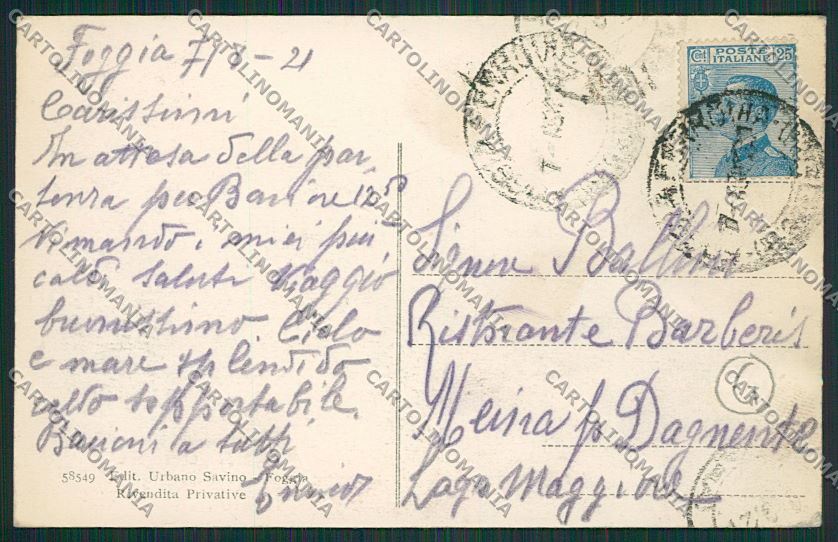 Foggia 7/8-21
Carissimi
In attesa della par
tenza per Bari ore 12
Vi mando i miei più
caldi saluti Viaggio
buonissimo Cielo
e mare splendido
caldo sopportabile.
Bacioni a tutti
Enrico
58549 Edit. Urbano Savino - Foggia
Rivendita Privative
Cmi POSTE 25
ITALIANE
Signor
Ristorante Barberis
Meina p. Dagnente
Lago Maggiore
CARTOLINOMANIA